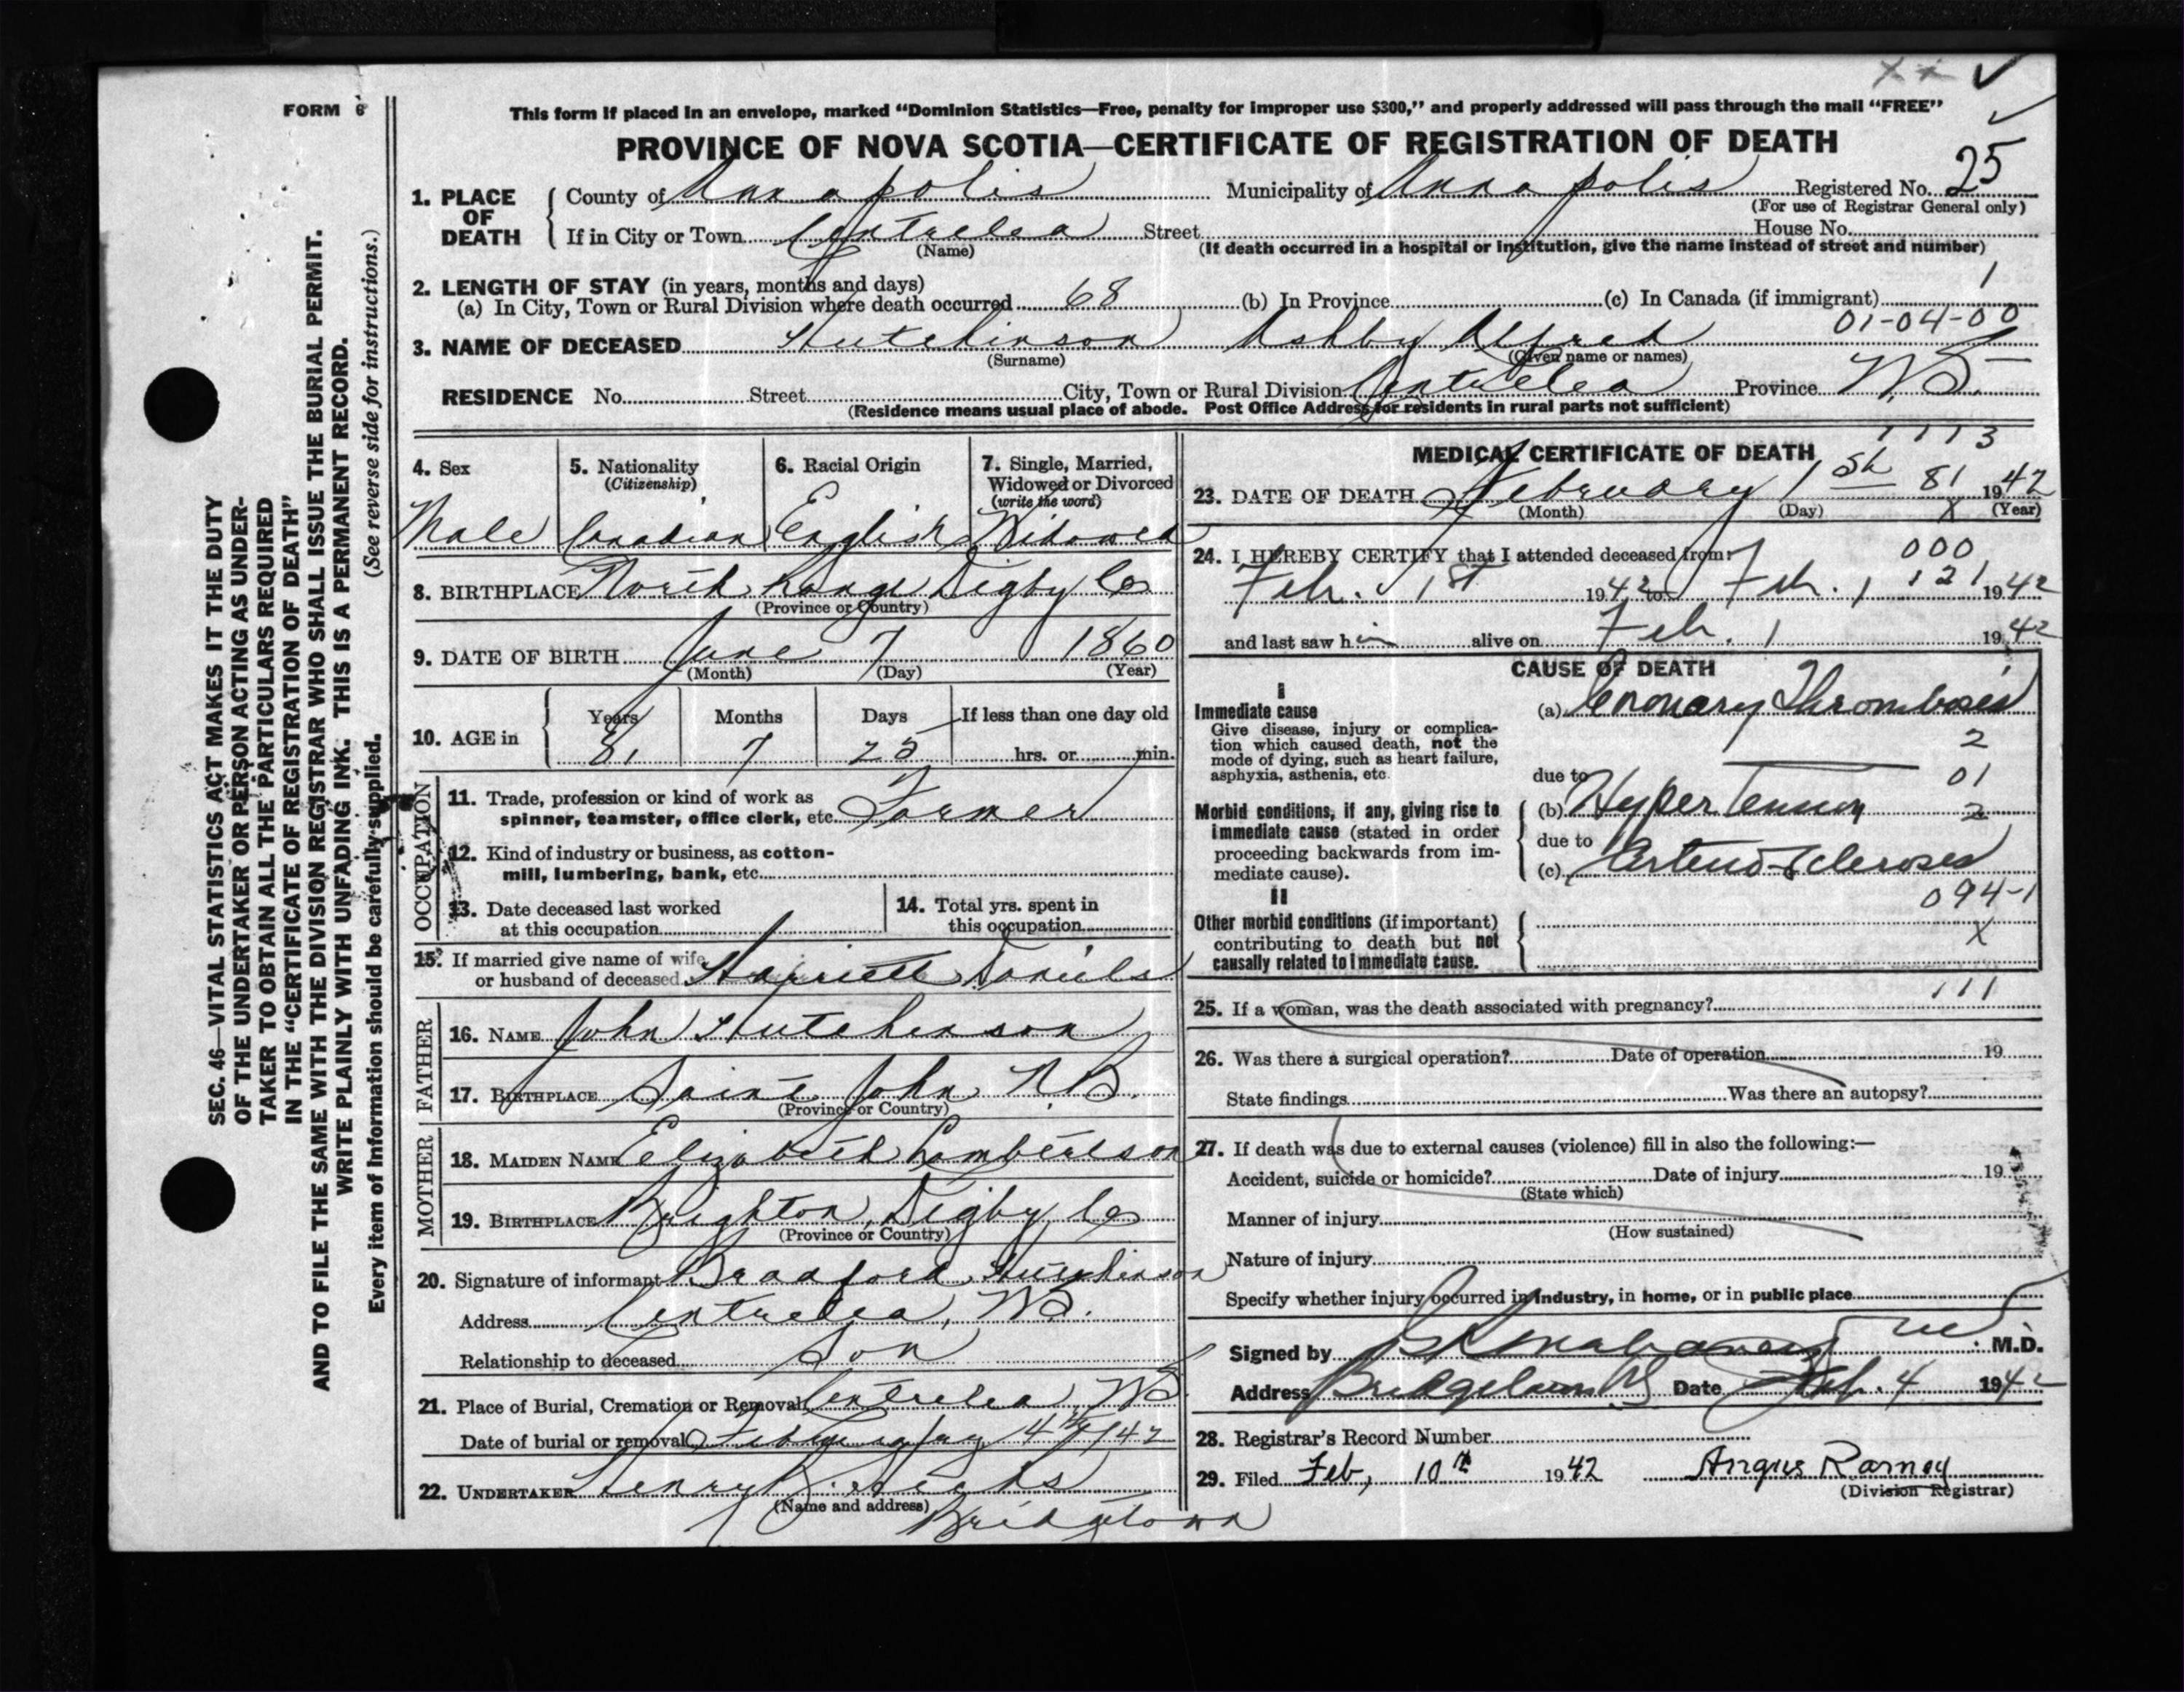 FORM 6
This form if placed in an envelope, marked “Dominion Statistics—Free, penalty for improper use $300,” and properly addressed will pass through the mail “FREE”
PROVINCE OF NOVA SCOTIA—CERTIFICATE OF REGISTRATION OF DEATH
1. PLACE OF DEATH County of Annapolis Municipality of Annapolis Registered No. 25
(For use of Registrar General only)
If in City or Town Centrelea Street House No.
(Name) (If death occurred in a hospital or institution, give the name instead of street and number)
2. LENGTH OF STAY (in years, months and days) 1
(a) In City, Town or Rural Division where death occurred 68 (b) In Province (c) In Canada (if immigrant)
01-04-00
3. NAME OF DECEASED Hutchinson Ashby Alfred
(Surname) (Given name or names)
RESIDENCE No. Street City, Town or Rural Division Centrelea Province N.S.
(Residence means usual place of abode. Post Office Address for residents in rural parts not sufficient)
4. Sex 5. Nationality (Citizenship) 6. Racial Origin 7. Single, Married, Widowed or Divorced (write the word)
Male Canadian English Widowed
8. BIRTHPLACE North Range Digby Co
(Province or Country)
9. DATE OF BIRTH June 7 1860
(Month) (Day) (Year)
10. AGE in Years Months Days If less than one day old
81 7 25 hrs. or min.
OCCUPATION
11. Trade, profession or kind of work as
spinner, teamster, office clerk, etc. Farmer
12. Kind of industry or business, as cotton-
mill, lumbering, bank, etc.
13. Date deceased last worked
at this occupation
14. Total yrs. spent in
this occupation
15. If married give name of wife
or husband of deceased Harriett Daniels
FATHER
16. NAME John Hutchinson
17. BIRTHPLACE Saint John N.B.
(Province or Country)
MOTHER
18. MAIDEN NAME Elizabeth Lambertson
19. BIRTHPLACE Brighton, Digby Co
(Province or Country)
20. Signature of informant Bradford Hutchinson
Address Centrelea, N.S.
Relationship to deceased Son
21. Place of Burial, Cremation or Removal Centrelea N.S.
Date of burial or removal February 4th 1942
22. UNDERTAKER Henry B. Hicks
(Name and address) Bridgetown
MEDICAL CERTIFICATE OF DEATH 1113
23. DATE OF DEATH February 1st 81 1942
(Month) (Day) X (Year)
24. I HEREBY CERTIFY that I attended deceased from: 000
Feb. 1st 1942 to Feb. 1 121 1942
and last saw him alive on Feb. 1 1942
CAUSE OF DEATH
I
Immediate cause (a) Coronary Thrombosis
Give disease, injury or complica-
tion which caused death, not the
mode of dying, such as heart failure,
asphyxia, asthenia, etc.
2
due to 01
Morbid conditions, if any, giving rise to (b) Hyper Tension 2
immediate cause (stated in order
proceeding backwards from im-
mediate cause).
due to
(c) Arterio-Sclerosis
094-1
II
Other morbid conditions (if important)
contributing to death but not
causally related to immediate cause.
X
111
25. If a woman, was the death associated with pregnancy?
26. Was there a surgical operation? Date of operation 19
State findings Was there an autopsy?
27. If death was due to external causes (violence) fill in also the following:—
Accident, suicide or homicide? Date of injury 19
(State which)
Manner of injury
(How sustained)
Nature of injury
Specify whether injury occurred in industry, in home, or in public place
Signed by M.D.
Address Bridgetown NS Date Feb. 4 1942
28. Registrar's Record Number
29. Filed Feb, 10th 1942 Angus Ramey
(Division Registrar)
SEC. 46—VITAL STATISTICS ACT MAKES IT THE DUTY
OF THE UNDERTAKER OR PERSON ACTING AS UNDER-
TAKER TO OBTAIN ALL THE PARTICULARS REQUIRED
IN THE “CERTIFICATE OF REGISTRATION OF DEATH”
AND TO FILE THE SAME WITH THE DIVISION REGISTRAR WHO SHALL ISSUE THE BURIAL PERMIT.
WRITE PLAINLY WITH UNFADING INK. THIS IS A PERMANENT RECORD.
Every item of information should be carefully supplied. (See reverse side for instructions.)